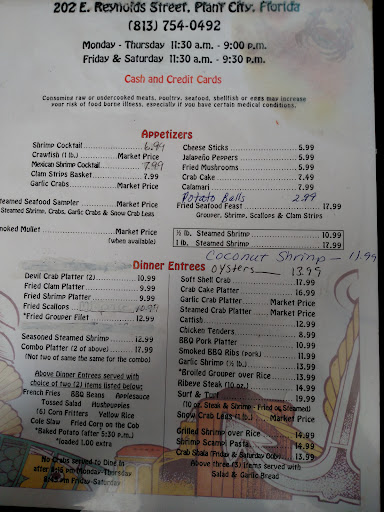 202 E. Reynolds Street, Plant City, Florida
(813) 754-0492
Monday - Thursday 11:30 a.m. - 9:00 p.m.
Friday & Saturday 11:30 a.m. - 9:30 p.m.
Cash and Credit Cards
Consuming raw or undercooked meats, poultry, seafood, shellfish or eggs may increase
your risk of food borne illness, especially if you have certain medical conditions.
Appetizers
Shrimp Cocktail 6.99
Crawfish (1 lb.) Market Price
Mexican Shrimp Cocktail 7.99
Clam Strips Basket 7.99
Garlic Crabs Market Price
Steamed Seafood Sampler Market Price
Steamed Shrimp, Crabs, Garlic Crabs & Snow Crab Legs
Smoked Mullet Market Price
(when available)
Cheese Sticks 5.99
Jalapeño Peppers 5.99
Fried Mushrooms 5.99
Crab Cake 7.49
Calamari 7.99
Potato Balls 2.99
Fried Seafood Feast 17.99
Grouper, Shrimp, Scallops & Clam Strips
½ lb. Steamed Shrimp 10.99
1 lb. Steamed Shrimp 17.99
Coconut Shrimp - 11.99
Dinner Entrees
oysters 13.99
Devil Crab Platter (2) 10.99
Fried Clam Platter 9.99
Fried Shrimp Platter 9.99
Fried Scallops
*Fried Grouper Filet 12.99
Seasoned Steamed Shrimp 12.99
Combo Platter (2 of above) 17.99
(Not two of same the same for the combo)
Above Dinner Entrees served with
choice of two (2) items listed below:
French Fries BBQ Beans Applesauce
Tossed Salad Hushpuppies
(6) Corn Fritters Yellow Rice
Cole Slaw Fried Corn on the Cob
*Baked Potato (after 5:30 p.m.)
*loaded 1.00 extra
No Crabs served to Dine In
after 8:15 pm Monday-Thursday
8:45 pm Friday-Saturday
Soft Shell Crab 12.99
Crab Cake Platter 16.99
Garlic Crab Platter Market Price
Steamed Crab Platter Market Price
Catfish 12.99
Chicken Tenders 8.99
BBQ Pork Platter 10.99
Smoked BBQ Ribs (Pork) 11.99
Garlic Shrimp (½ lb.) 13.99
*Broiled Grouper over Rice 13.99
Ribeye Steak (10 oz.) 14.99
Surf & Turf 19.99
(10 oz. Steak & Shrimp - Fried or Steamed)
Snow Crab Legs (1 lb.) Market Price
Grilled Shrimp over Rice 14.99
Shrimp Scampi Pasta 14.99
Crab Shala (Friday & Saturday Only) 13.99
Above three (3) items served with
Salad & Garlic Bread